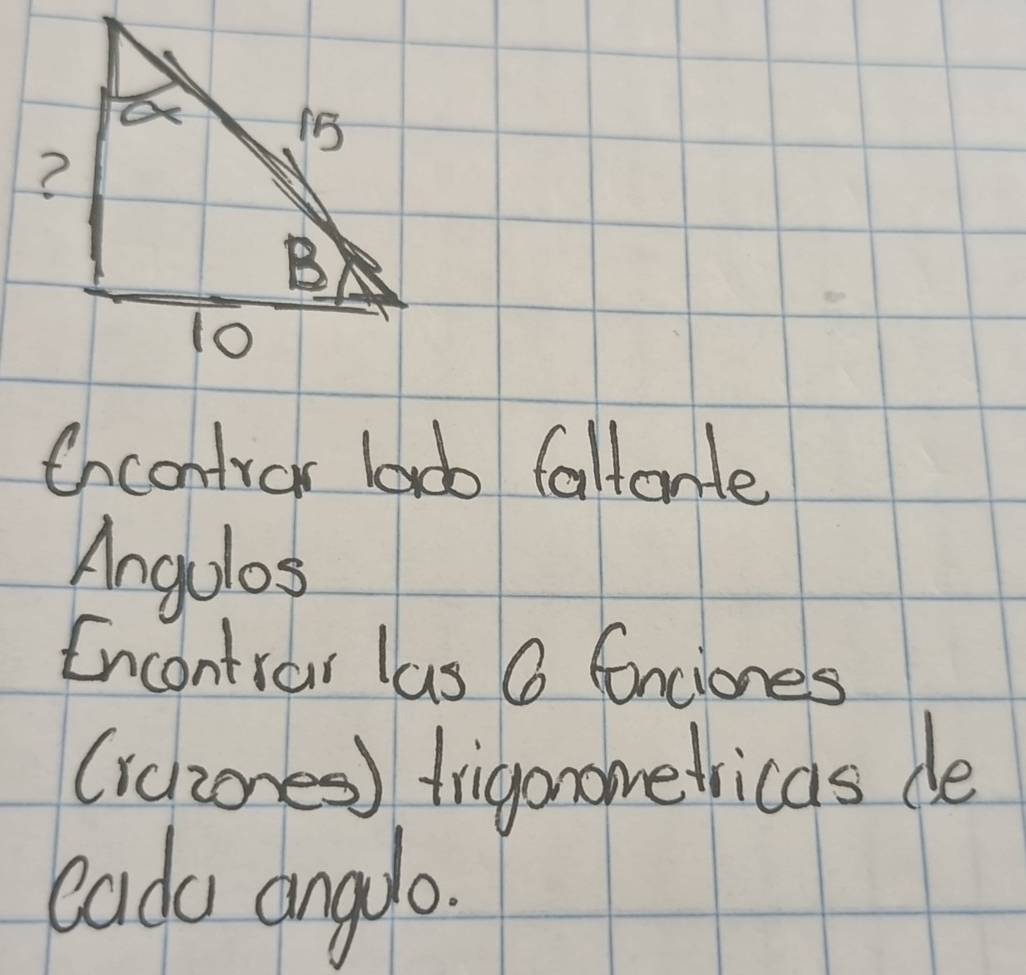 α
15
?
B
10
Encontrar lado faltante
Angulos
Encontrar las 6 funciones
(razones) trigonometricas de
cada angulo.